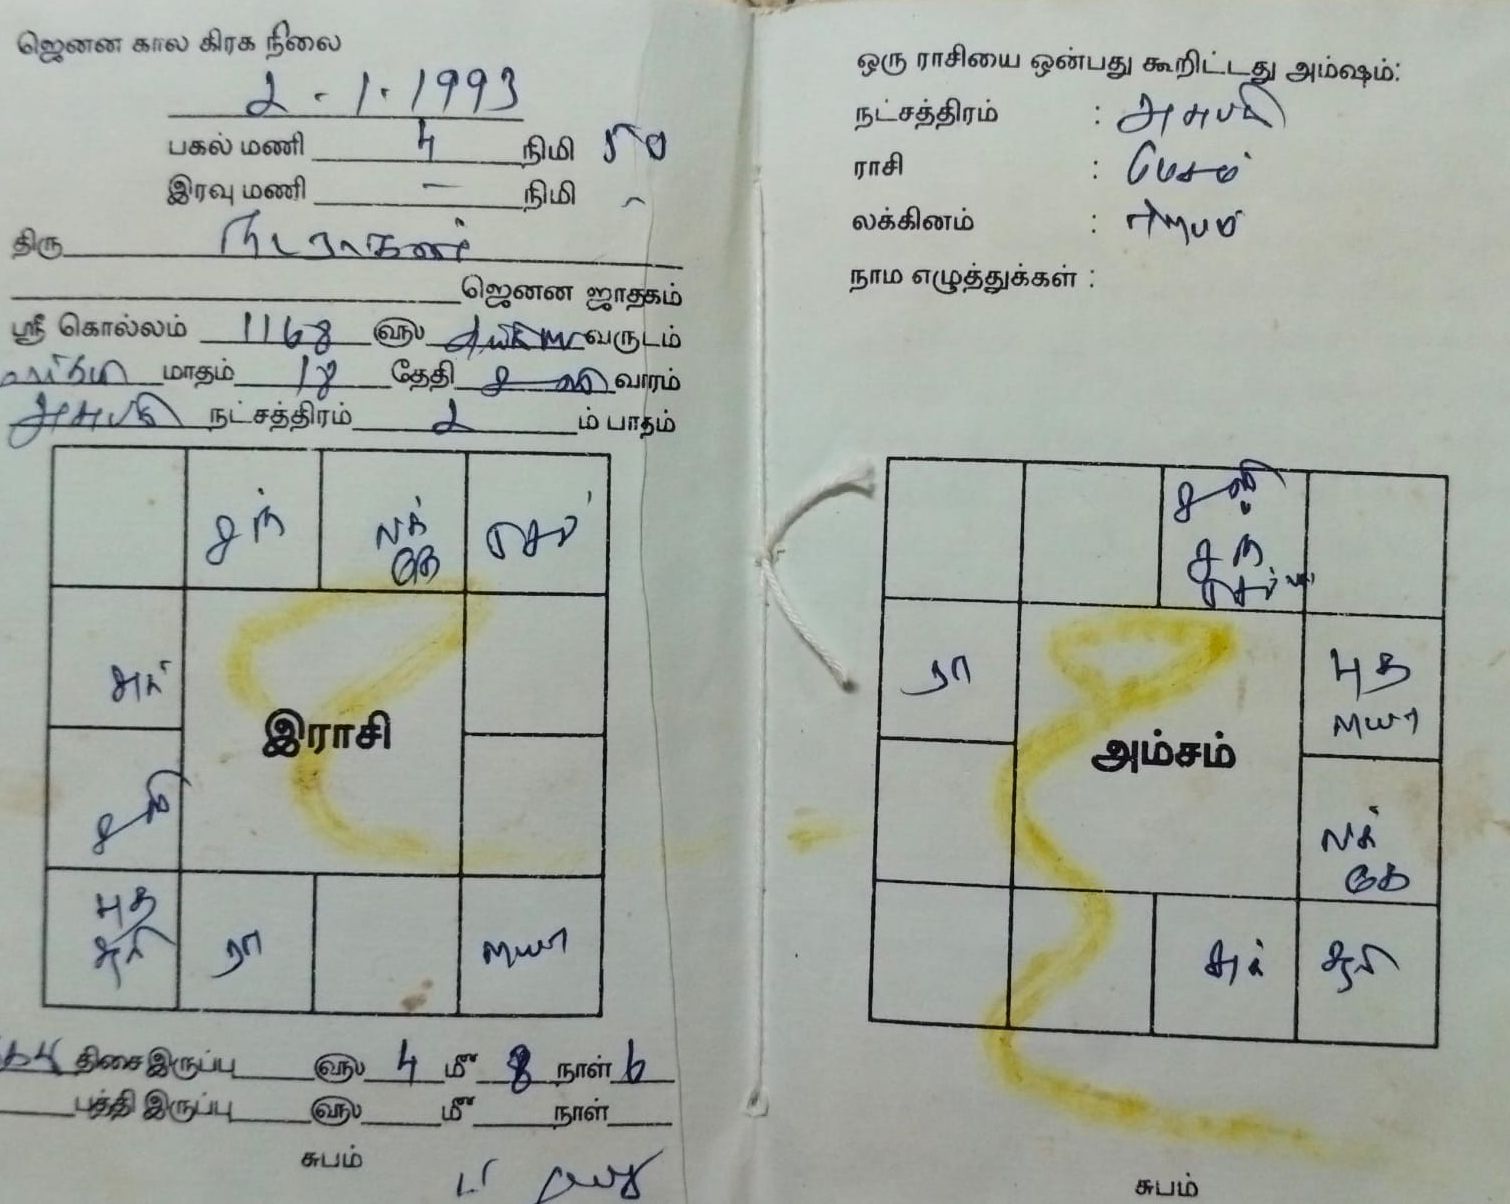 ஜெனன கால கிரக நிலை
2.1.1993
பகல் மணி 4 நிமி 50
இரவு மணி — நிமி -
திரு நடராகண்
ஜெனன ஜாதகம்
ஸ்ரீ கொல்லம் 1168 ௵ வருடம்
மார்கழி மாதம் 18 தேதி சனி வாரம்
அசுபதி நட்சத்திரம் 2 ம் பாதம்
சந்
லக்
கே
செவ்
சுக்
இராசி
சனி
புத
சூரி
ரா
வியா
திசை இருப்பு ௵ 4 மீ 8 நாள் 6
புத்தி இருப்பு ௵ மீ நாள்
சுபம்
ஒரு ராசியை ஒன்பது கூறிட்டது அம்ஷம்:
நட்சத்திரம் : அசுபதி
ராசி : மேசம்
லக்கினம் : ரிஷபம்
நாம எழுத்துக்கள் :
சனி
சந்
செவ்
ரா
புத
வியா
அம்சம்
லக்
கே
சுக்
சூரி
சுபம்